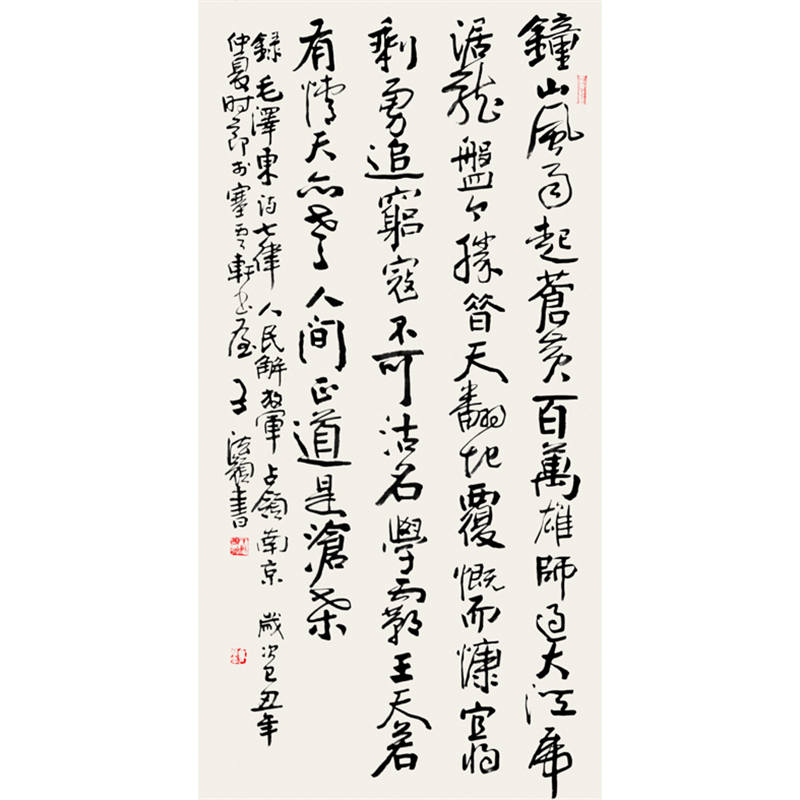 鐘山風雨起蒼黃百萬雄師過大江虎
踞龍盤今勝昔天翻地覆慨而慷宜将
剩勇追窮寇不可沽名學霸王天若
有情天亦老人间正道是滄桑
録毛澤東詩七律人民解放軍占領南京 歲次己丑年
仲夏时節於塞雲軒书屋 書